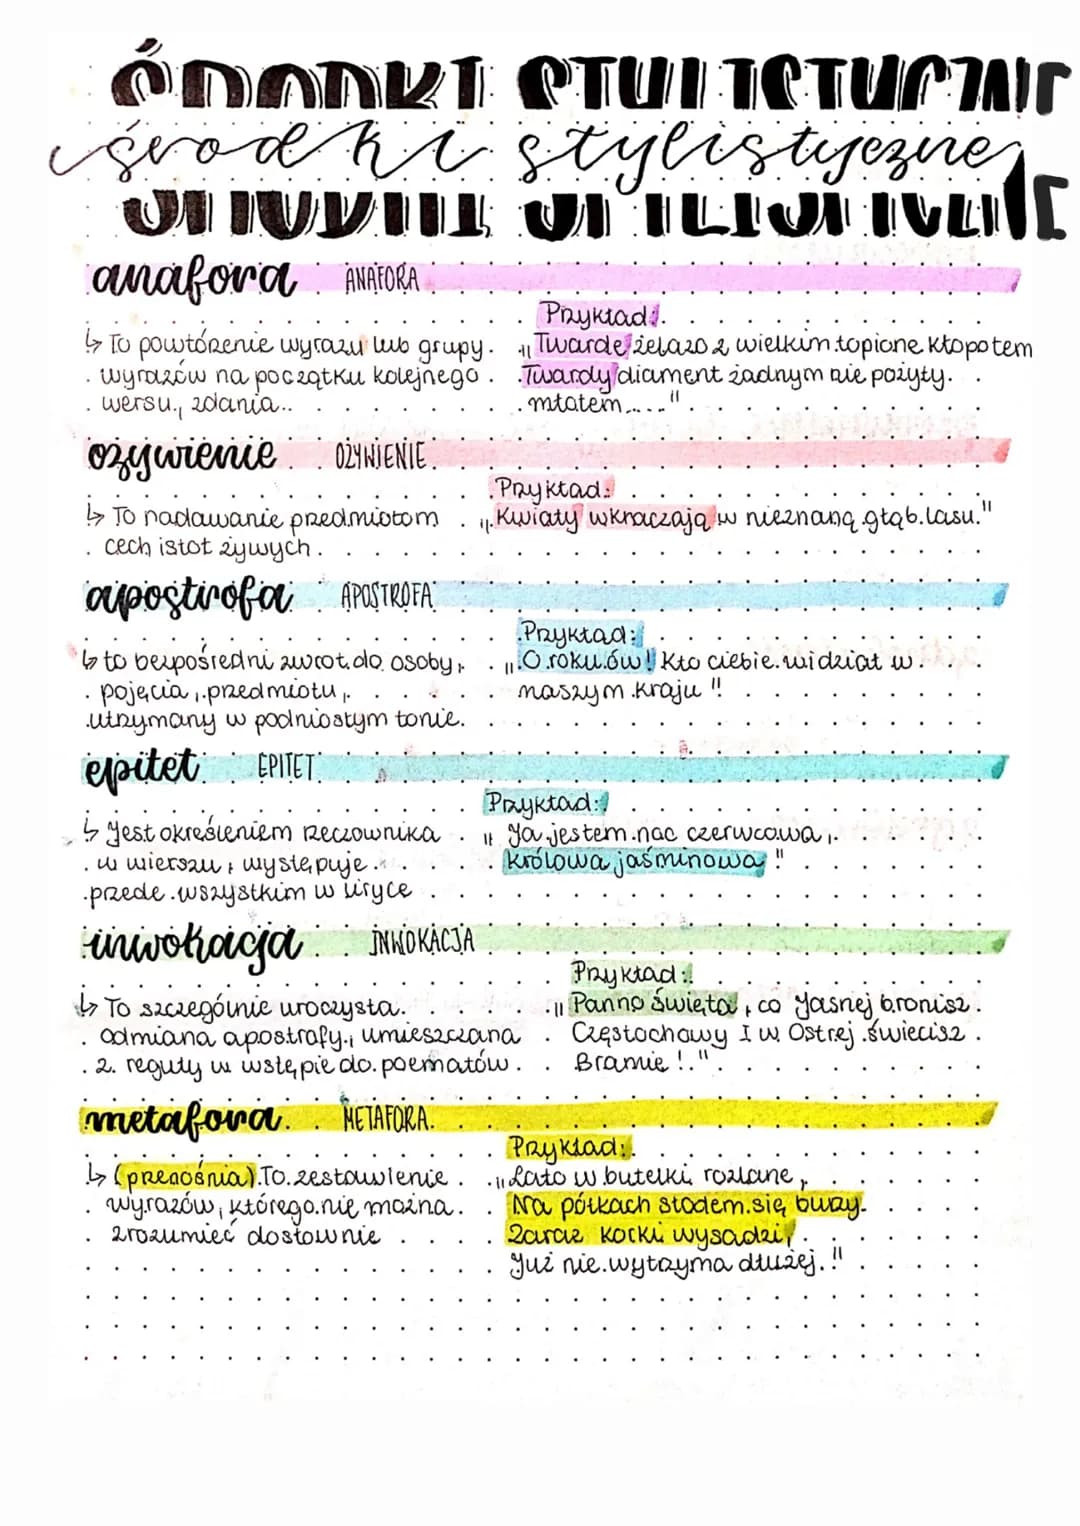 ŚRODKI STYLISTYCZNE
środki stylistyczne
anafora ANAFORA
Przykład:
↳ To powtórzenie wyrazu lub grupy
wyrazów na początku kolejnego
wersu, zdania..
"Twarde żelazo z wielkim topione kłopotem
Twardy diament żadnym nie pożyty
młotem....."
ożywienie OŻYWIENIE
Przykład:
↳ To nadawanie przedmiotom
cech istot żywych.
"Kwiaty wkraczają w nieznaną głąb lasu."
apostrofa APOSTROFA
Przykład:
↳ to bezpośredni zwrot do osoby,
pojęcia, przedmiotu,
utrzymany w podniosłym tonie.
"O roku ów! Kto ciebie widział w
naszym kraju"!
epitet EPITET
Przykład:
↳ Jest określeniem rzeczownika
w wierszu, występuje
przede wszystkim w liryce
" Ja jestem noc czerwcowa,
królowa jaśminowa "
inwokacja INWOKACJA
Przykład:
↳ To szczególnie uroczysta
odmiana apostrofy, umieszczana
z reguły we wstępie do poematów.
"Panno Święta, co Jasnej bronisz
Częstochowy I w Ostrej świecisz
Bramie!."
metafora METAFORA
Przykład:
↳ (przenośnia) To zestawienie
wyrazów, którego nie można
zrozumieć dosłownie
"Lato w butelki rozlane,
Na półkach słodem się burzy.
Zaraz korki wysadzi,
Już nie wytrzyma dłużej."